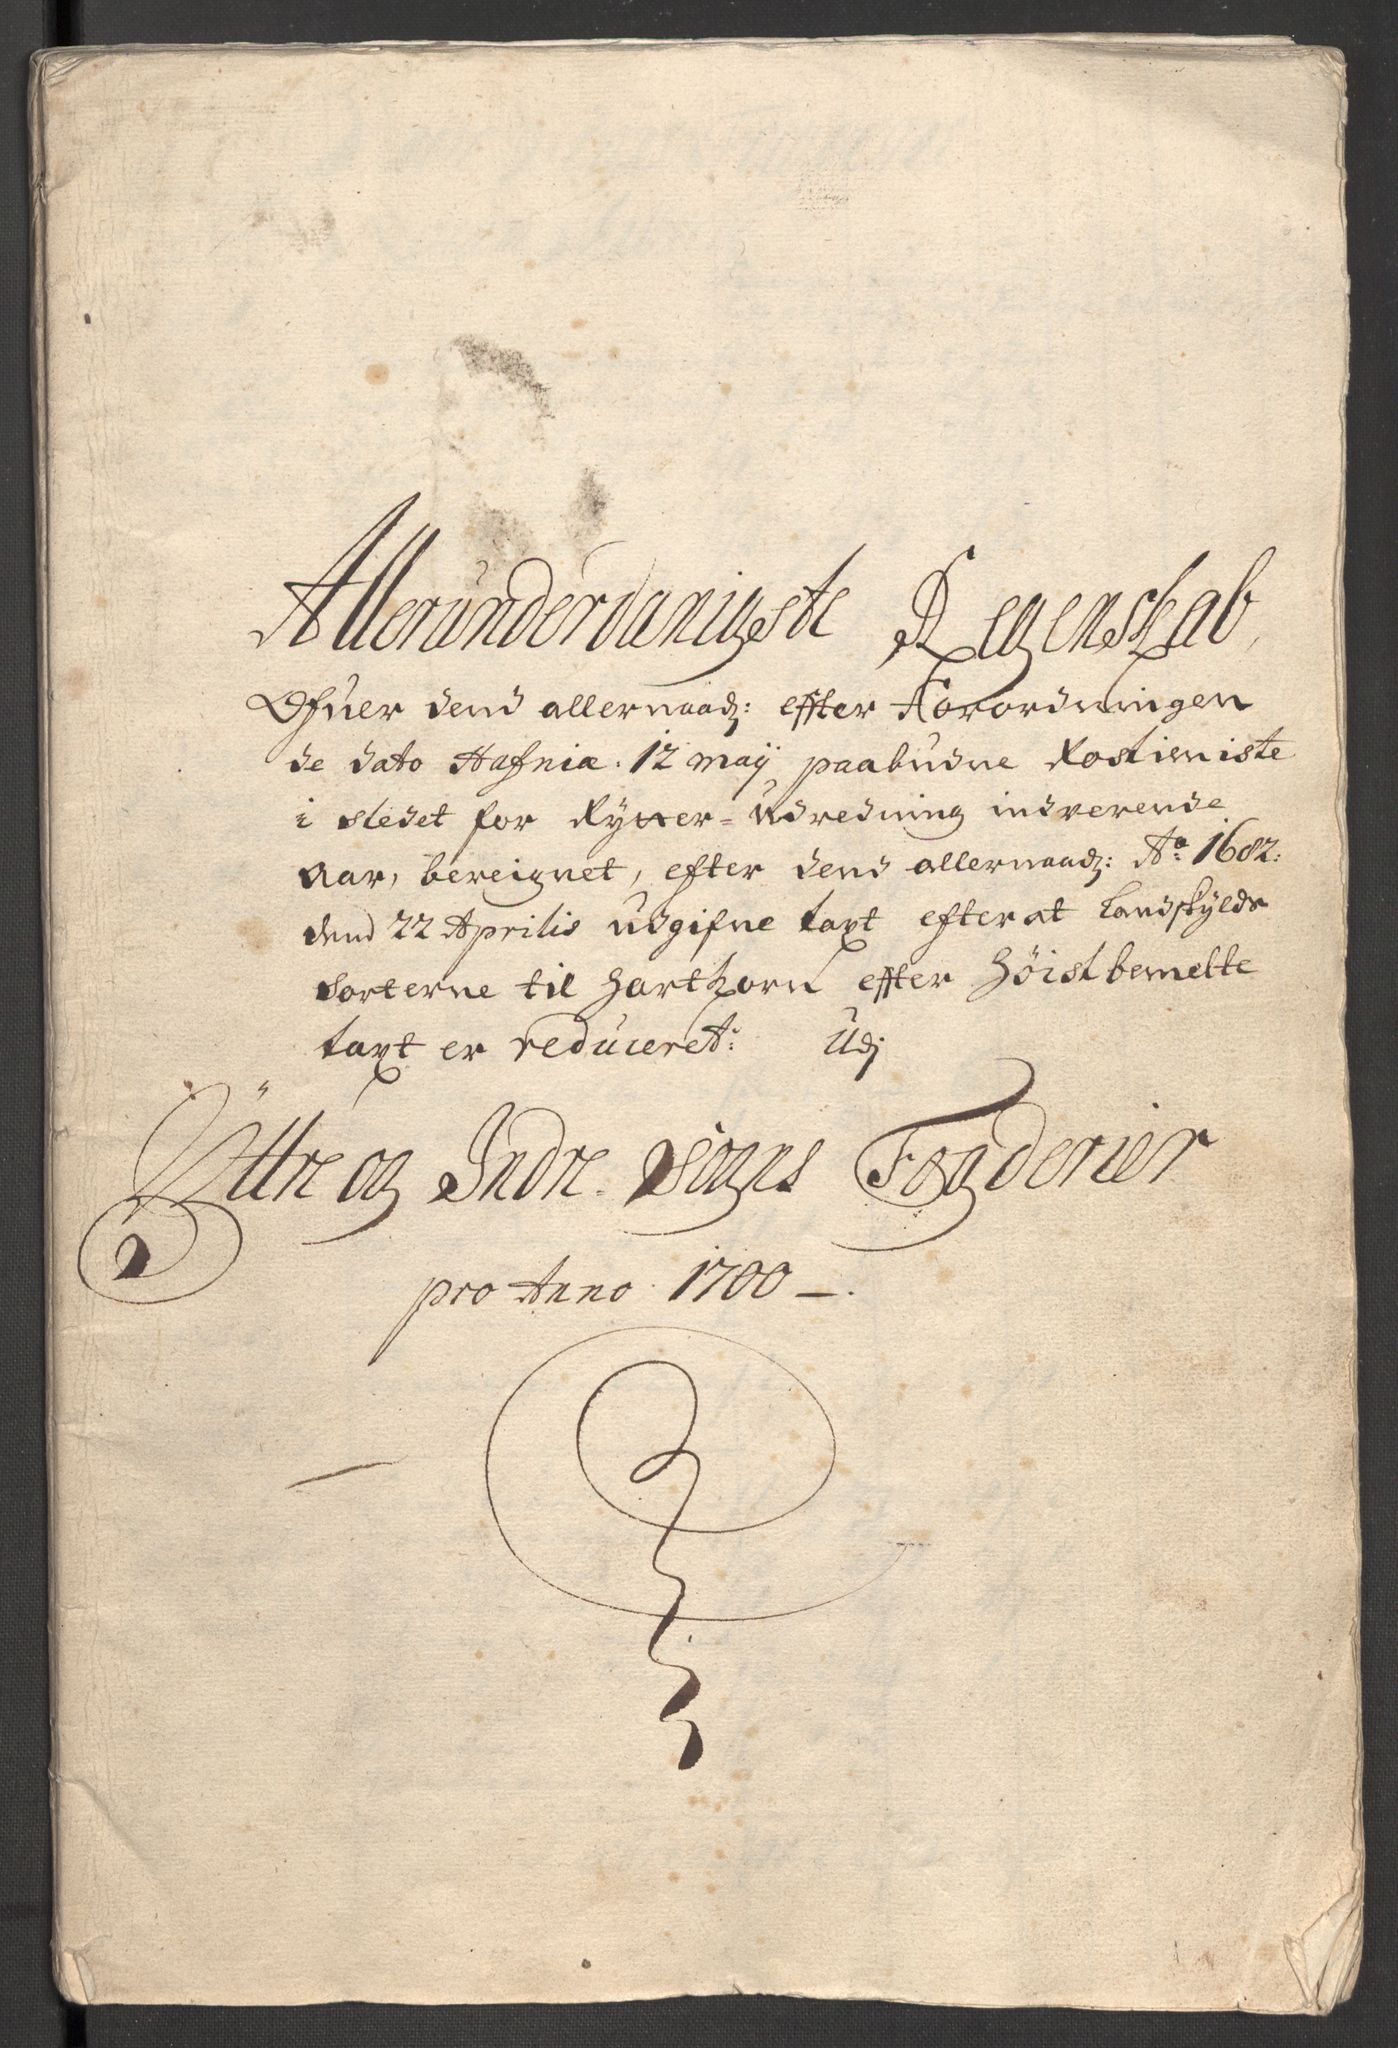 Allerunderdanigste Regenskab,
Ofuer dend allernaadg: effter Forordningen
de dato Hafniæ. 12 maÿ paabudne Rostieniste
i stedet for Rytter-Udredning indverende
Aar, bereignet, efter dend allernaadg: Ao 1682:
dend 22 Aprilis udgifne taxt efter at Landskylds
sorterne til Hartkorn effter Höistbemelte
taxt er reduceret: Udj
Ÿttre og Indre Sogns Fogderier
pro Anno 1700 –.